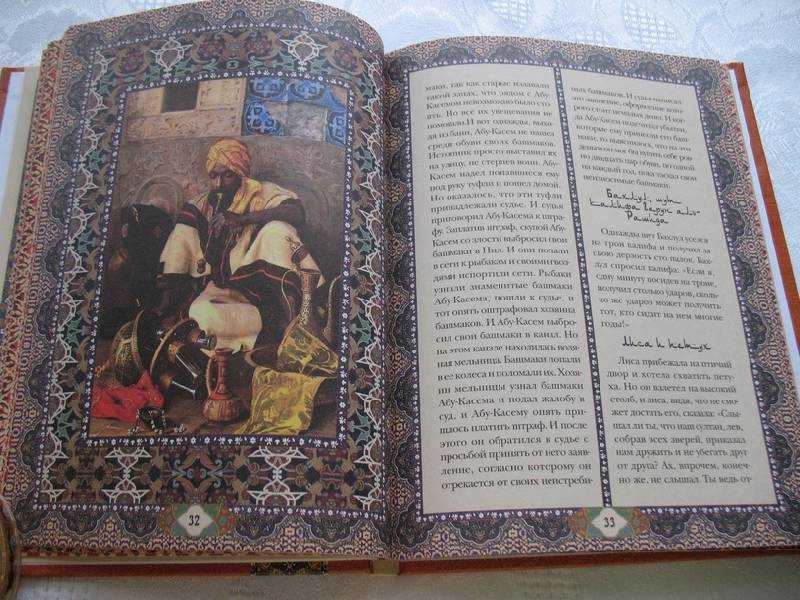 маки, так как старые издавали
такой запах, что рядом с Абу-
Касемом невозможно было сто-
ять. Но все их увещевания не
помогали. И вот однажды, выхо-
дя из бани, Абу-Касем не нашел
среди обуви своих башмаков.
Истопник просто выставил их
на улицу, не стерпев вони. Абу-
Касем надел попавшиеся ему
под руку туфли и пошел домой.
Но оказалось, что эти туфли
принадлежали судье. И судья
приговорил Абу-Касема к штра-
фу. Заплатив штраф, скупой Абу-
Касем со злости выбросил свои
башмаки в Нил. И они попали
в сети к рыбакам и своими гвоз-
дями испортили сети. Рыбаки
узнали знаменитые башмаки
Абу-Касема, пошли к судье, и
тот опять оштрафовал хозяина
башмаков. И Абу-Касем выбро-
сил свои башмаки в канал. Но
на этом канале находилась водя-
ная мельница. Башмаки попали
в ее колеса и поломали их. Хозя-
ин мельницы узнал башмаки
Абу-Касема и подал жалобу в
суд, и Абу-Касему опять при-
шлось платить штраф. И после
этого он обратился к судье с
просьбой принять от него заяв-
ление, согласно которому он
отрекается от своих неистреби-
мых башмаков. И судья написал
это заявление, оформление кото-
рого стоит немалых денег. И ког-
да Абу-Касем подсчитал убытки,
которые ему принесли его баш-
маки, то выяснилось, что на эти
деньги он мог бы купить себе ров-
но двадцать пар обуви, по одной
на каждый год, пока таскал свои
неизносимые башмаки.
Бахлул, шут
калифа Гарун аль-
Рашида
Однажды шут Бахлул уселся
на трон калифа и получил за
свою дерзость сто палок. Бах-
лул спросил калифа: «Если я,
одну минуту посидев на троне,
получил столько ударов, сколь-
ко же ударов может получить
тот, кто сидит на нем многие
годы!»
Лиса и петух
Лиса прибежала на птичий
двор и хотела схватить пету-
ха. Но он взлетел на высокий
столб, и лиса, видя, что не смо-
жет достать его, сказала: «Слы-
шал ли ты, что наш султан, лев,
собрав всех зверей, приказал
нам дружить и не убегать друг
от друга? Ах, впрочем, конеч-
но же, не слышал. Ты ведь от-
32
33